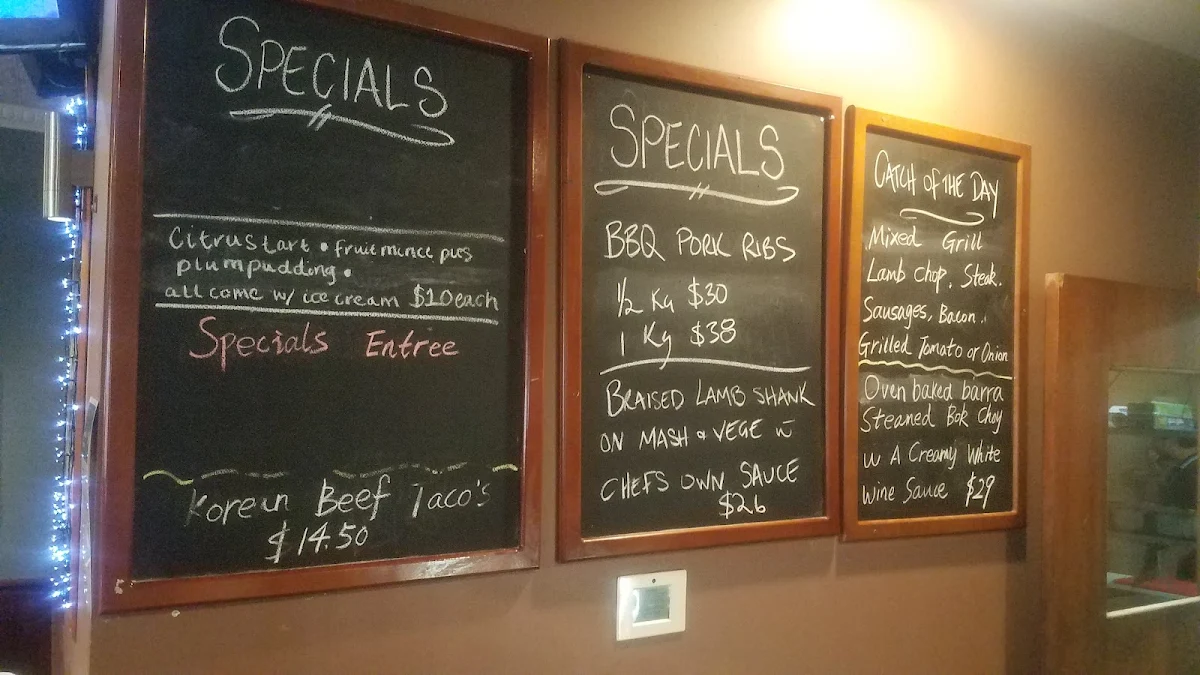 SPECIALS
Citrus tart • fruit mince pies
plum pudding •
all come w/ ice cream $10 each
Specials Entree
Korean Beef Taco's
$14.50
SPECIALS
BBQ PORK RIBS
1/2 Kg $30
1 Kg $38
BRAISED LAMB SHANK
ON MASH & VEGE W
CHEFS OWN SAUCE
$26
CATCH OF THE DAY
Mixed Grill
Lamb chop, Steak.
Sausages, Bacon..
Grilled Tomato or Onion
Oven baked barra
Steamed Bok Choy
w A Creamy White
Wine Sauce $29